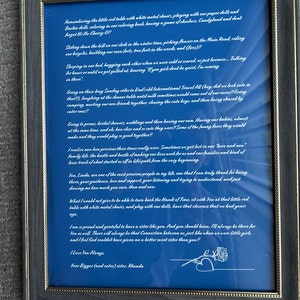 Remembering the little red table with white metal chairs, playing with our paper dolls and
Barbie dolls, coloring in our coloring book, having a game of checkers, Candyland and don't
forget Hi-Ho-Cherry-O!
Sliding down the hill on our sleds in the winter time, picking flowers on the Main Road, riding
our bicycles, building our snow forts, tree forts in the woods, and
Sleeping in our bed, hugging each other when we were cold or scared, or just because... Talking
for hours or until we got yelled at, hearing "If you girls don't be quiet, I'm coming
in there".
Going on those long Sunday rides in Dad's old International Travel All Chevy, did we look cute in
that(?), laughing at the dinner table until milk sometimes would come out of our noses! Going
camping, meeting our new friends together, chasing the cute boys, and then being chased by
cuter ones!!
Going to proms, bridal showers, weddings and then having our own. Having our babies, almost
at the same time, and oh, how nice and so cute they were! Some of the funny faces they would
make and they would play so good together!!
I realize now how precious those times really were. Sometimes we get lost in our "here and now"
family life, the hustle and bustle of making our lives work for us and our families and kind of
lose track of what started us off in life's path from the very beginning.
You, Linda, are one of the most precious people in my life, one that I can truly thank for being
there, your guidance, love and support, your listening and trying to understand, and just
showing me how much you care, then and now.
What I would not give to be able to turn back the Hands of Time, sit with you at that little red
table with white metal chairs, and play with our dolls, have that closeness that we had years
ago.
I am so proud and grateful to have a sister like you. And you should know, I'll always be there for
You as well. There will always be that Connection between us, just like when we were little girls,
and I feel God couldn't have given me a better sweet sister than you!!
I Love You Always,
Your Bigger (and cuter) sister, Rhonda